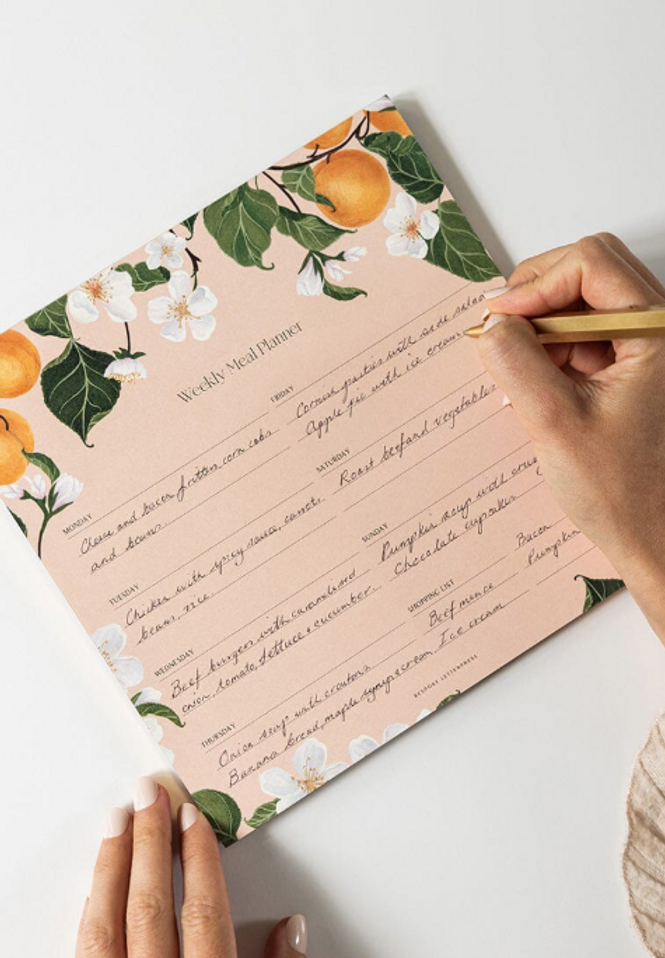 Weekly Meal Planner
MONDAY
Cheese and bacon fritters corn cobs
and beans.
TUESDAY
Chicken with spicy sauce, carrots
beans, rice.
WEDNESDAY
Beef burgers with caramelised
onion, tomato, lettuce + cucumber.
THURSDAY
Onion soup with croutons
Banana bread, maple syrup + cream.
FRIDAY
Cornish pasties with side salad
Apple pie with ice cream
SATURDAY
Roast beef and vegetables
SUNDAY
Pumpkin soup with
Chocolate cupcakes
SHOPPING LIST
Beef mince Bacon
Ice cream Pumpkin
BESPOKE LETTERPRESS